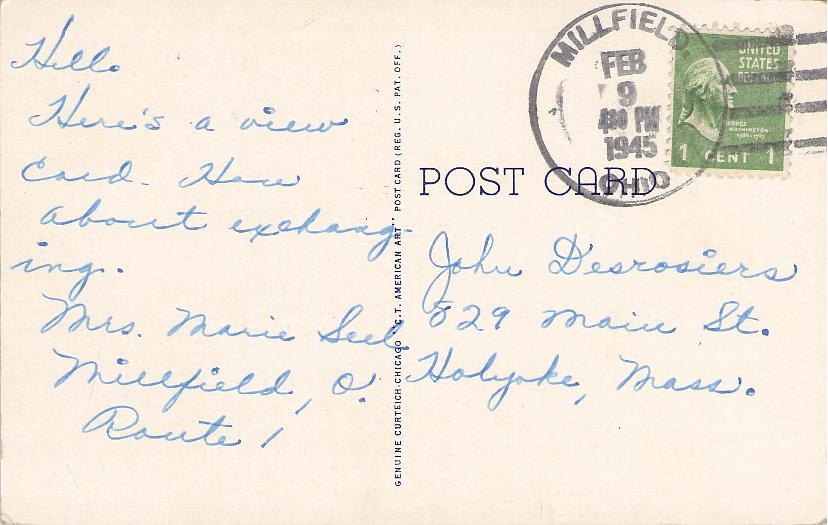 Hello
Here's a view
Card. How
about exchang-
ing.
Mrs. Marie Seel
Millfield, O.
Route 1
GENUINE CURTEICH-CHICAGO "C.T. AMERICAN ART" POST CARD (REG. U.S. PAT. OFF.)
MILLFIELD
FEB
9
430 PM
1945
OHIO
UNITED
STATES
GEORGE
WASHINGTON
1 CENT 1
POST CARD
John Desrosiers
529 Main St.
Holyoke, Mass.